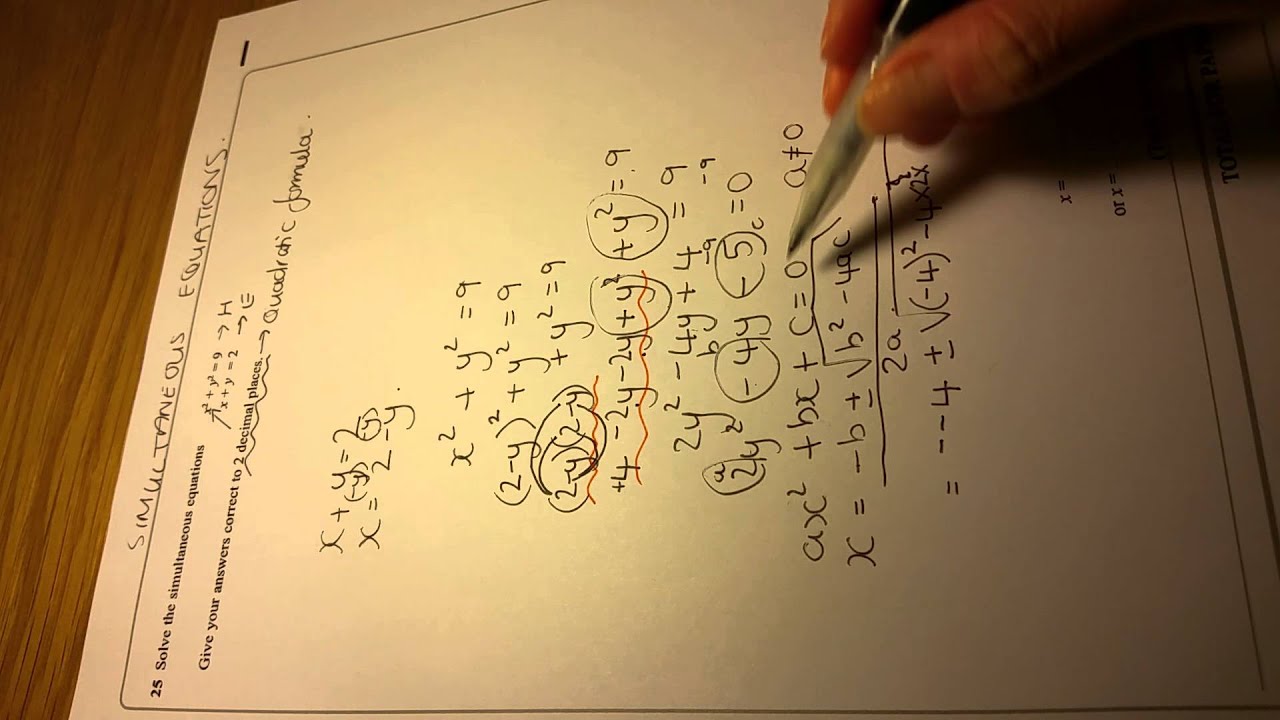 SIMULTANEOUS EQUATIONS.
25 Solve the simultaneous equations
x² + y² = 9 → H
x + y = 2 → E
Give your answers correct to 2 decimal places. → Quadratic formula.
x + y = 2
(-y) (-y)
x = 2 - y
x² + y² = 9
(2-y)² + y² = 9
(2-y)(2-y) + y² = 9
+4 -2y -2y + y² + y² = 9
2y² - 4y + 4 = 9
-9 -9
a b c
2y² - 4y - 5 = 0
ax² + bx + c = 0 a≠0
x = -b ± √b² - 4ac
2a
= - -4 ± √(-4)² - 4×2×
x =
or x =